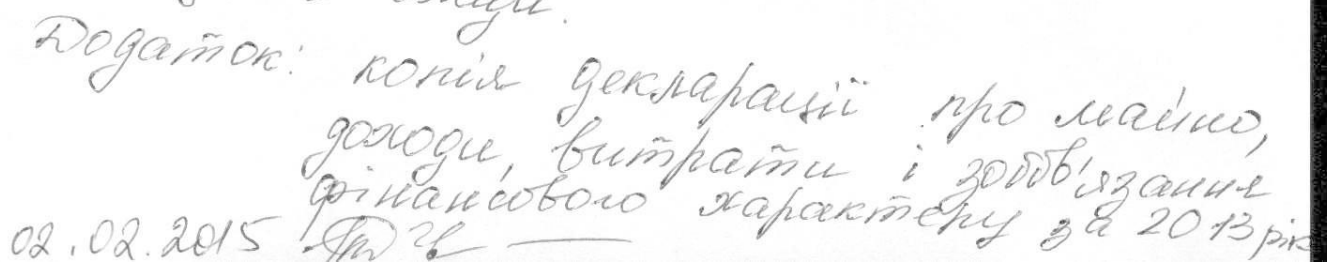 Додаток: копія декларації про майно,
доходи, витрати і зобов'язання
фінансового характеру за 2013 рік
02.02.2015